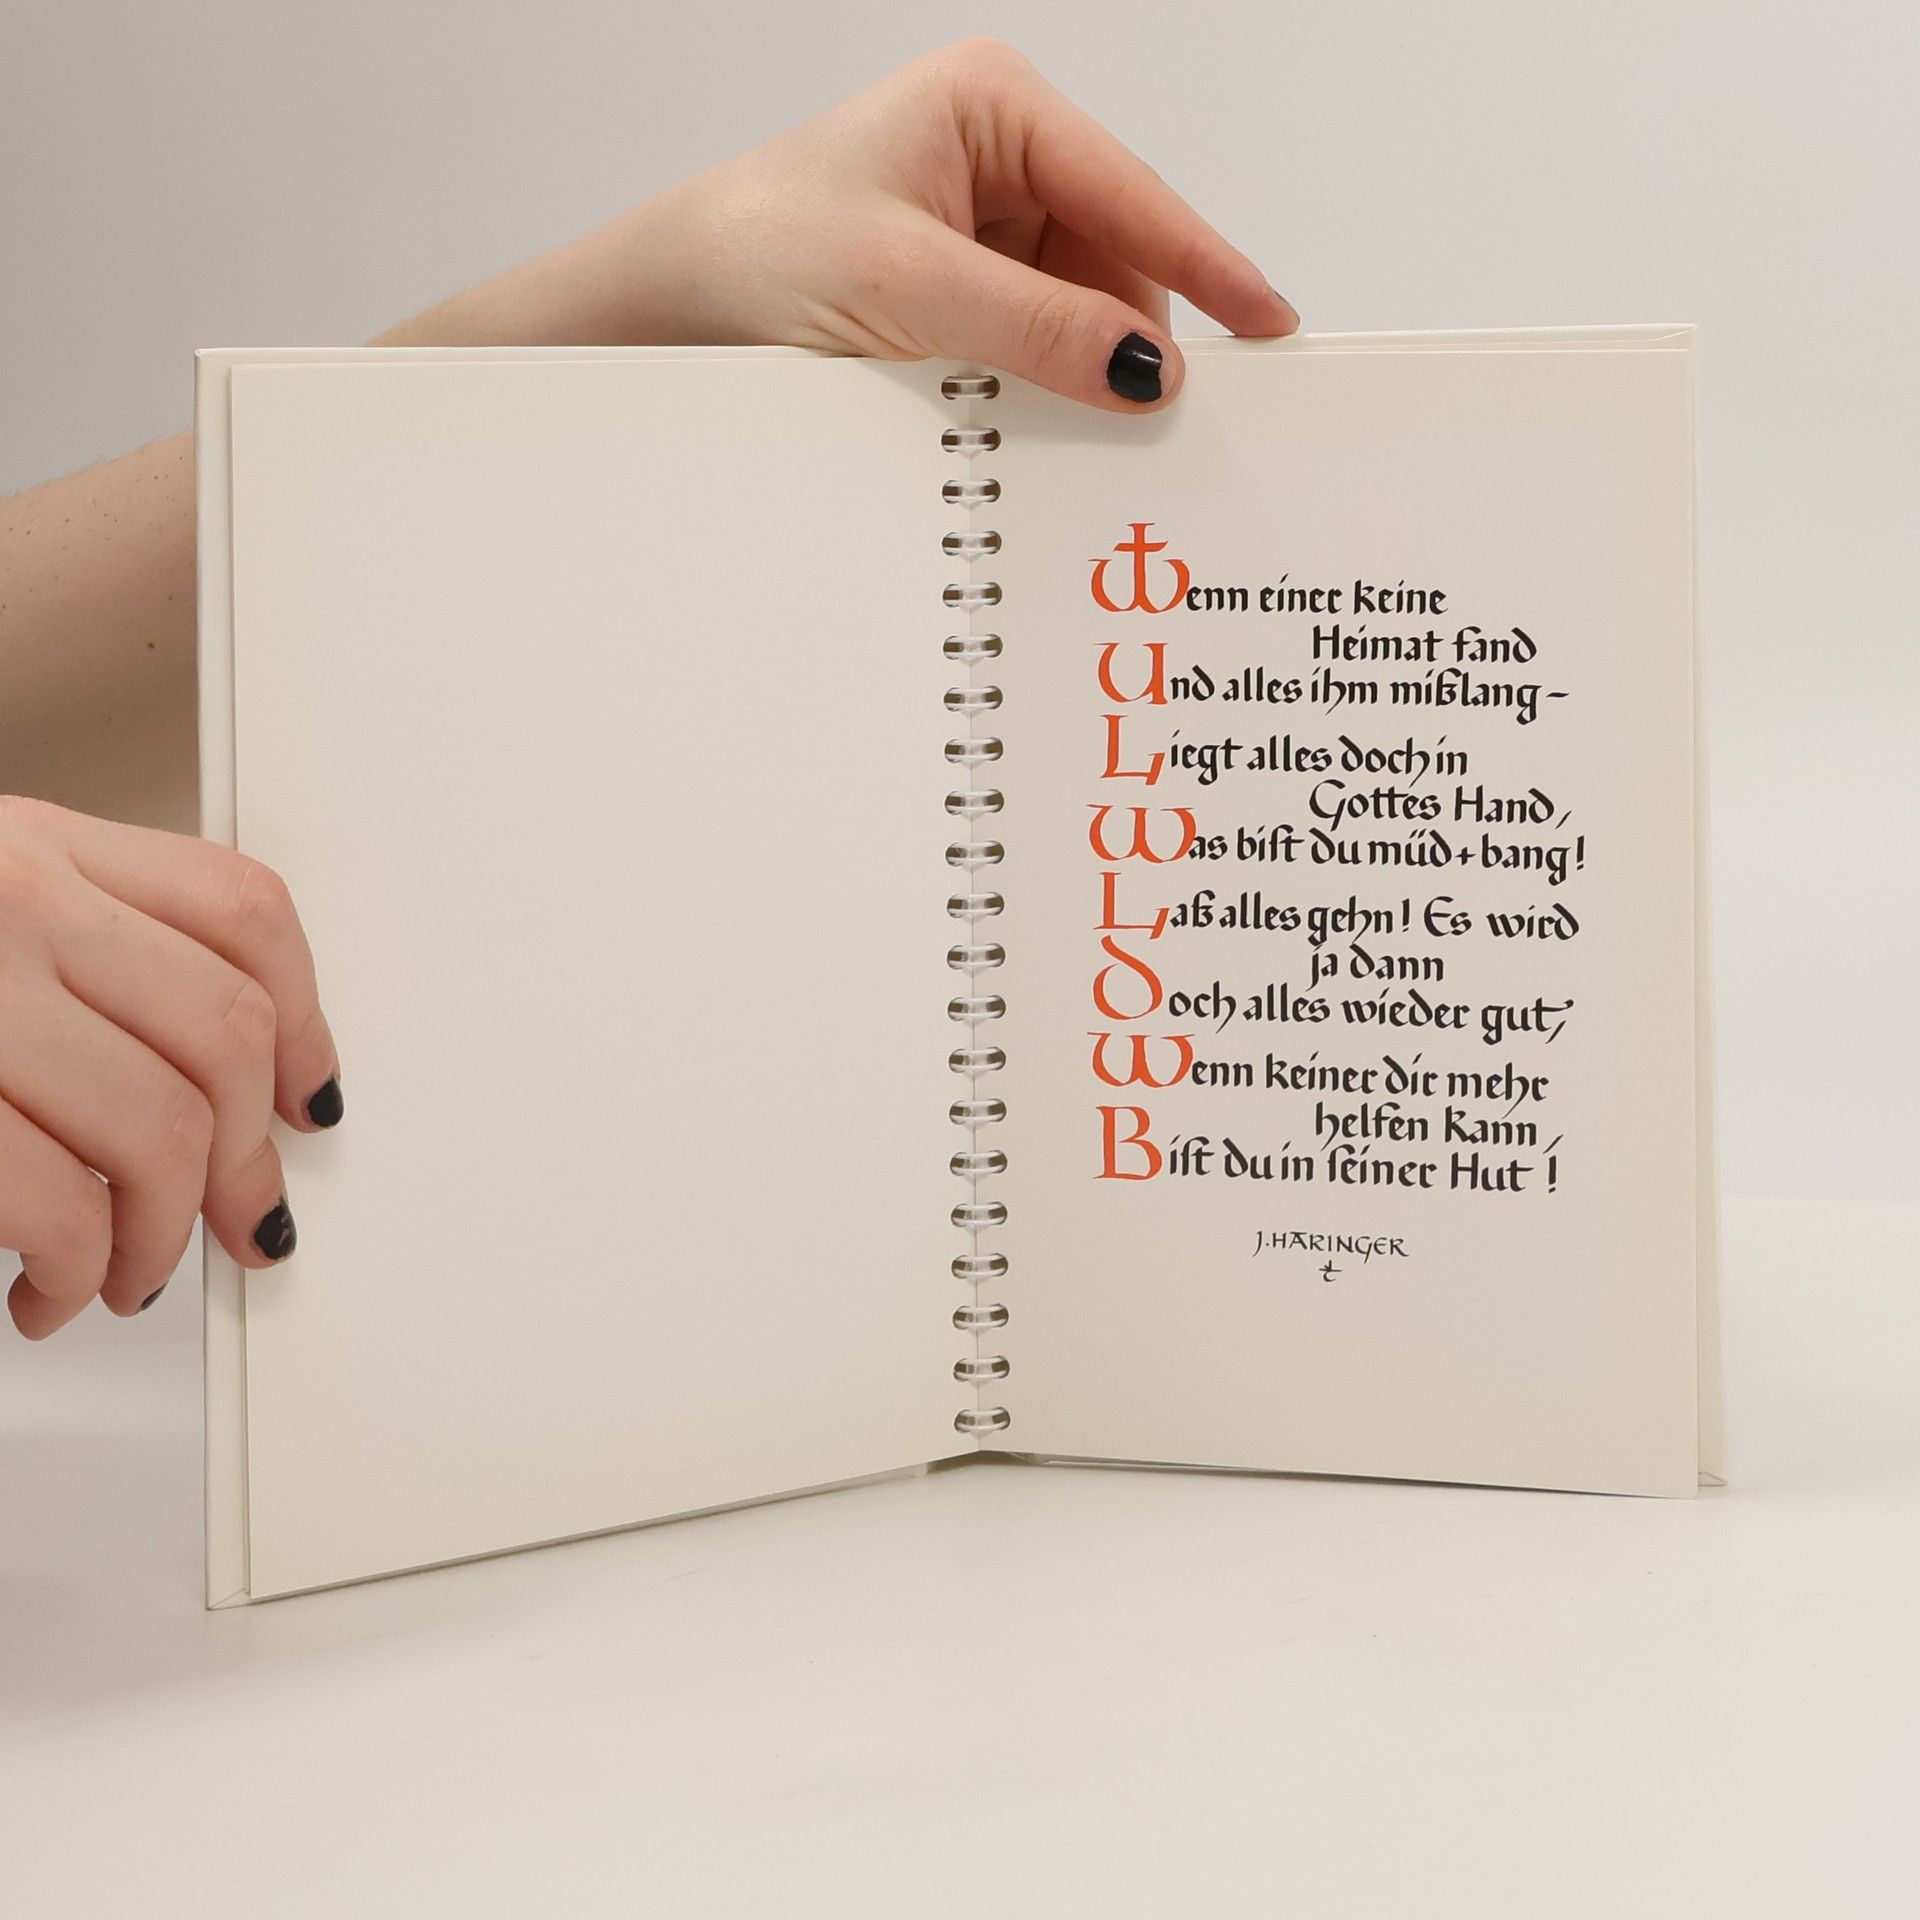 Wenn einer keine
Heimat fand
Und alles ihm mißlang –
Liegt alles doch in
Gottes Hand,
Was bist du müd + bang!
Laß alles gehn! Es wird
ja dann
Doch alles wieder gut,
Wenn keiner dir mehr
helfen kann,
Bist du in seiner Hut!
J. HARINGER